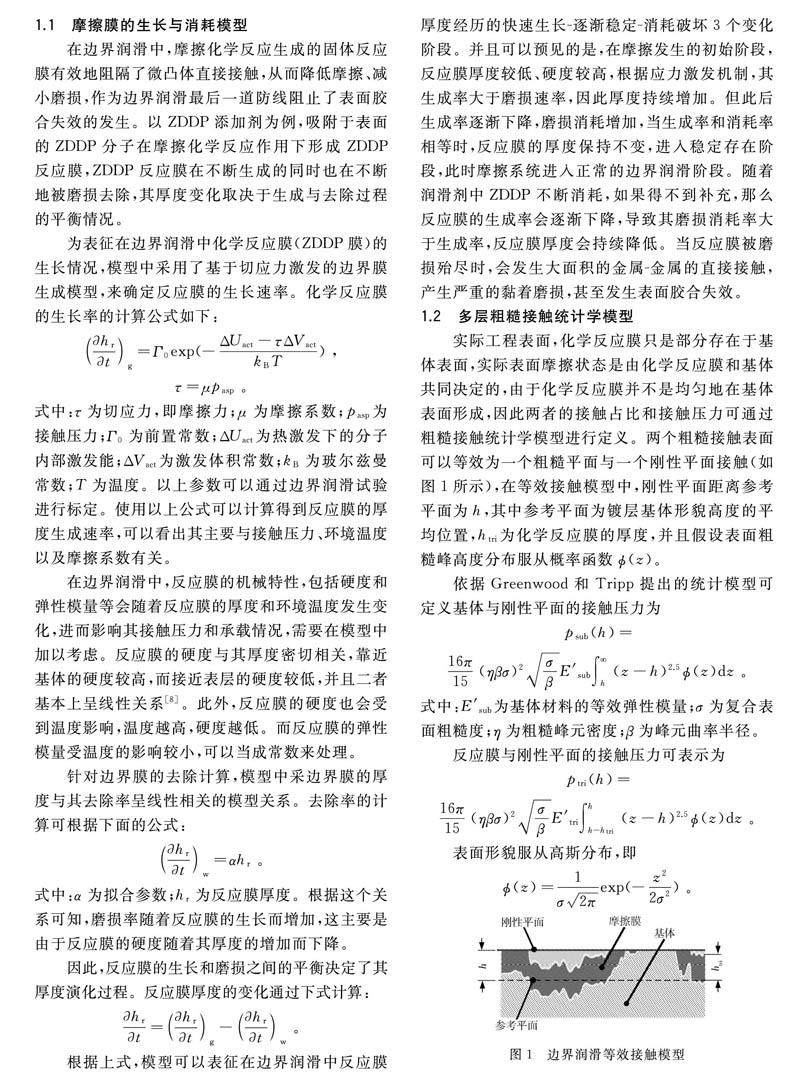 1.1 摩擦膜的生长与消耗模型
在边界润滑中,摩擦化学反应生成的固体反应
膜有效地阻隔了微凸体直接接触,从而降低摩擦、减
小磨损,作为边界润滑最后一道防线阻止了表面胶
合失效的发生。以 ZDDP 添加剂为例,吸附于表面
的 ZDDP 分子在摩擦化学反应作用下形成 ZDDP
反应膜,ZDDP 反应膜在不断生成的同时也在不断
地被磨损去除,其厚度变化取决于生成与去除过程
的平衡情况。
为表征在边界润滑中化学反应膜(ZDDP 膜)的
生长情况,模型中采用了基于切应力激发的边界膜
生成模型,来确定反应膜的生长速率。化学反应膜
的生长率的计算公式如下:
(∂hr/∂t)g = Γ0 exp(− (ΔUact − τΔVact)/(kBT)) ,
τ = μpasp 。
式中:τ 为切应力,即摩擦力;μ 为摩擦系数;pasp为
接触压力;Γ0 为前置常数;ΔUact为热激发下的分子
内部激发能;ΔVact为激发体积常数;kB 为玻尔兹曼
常数;T 为温度。以上参数可以通过边界润滑试验
进行标定。使用以上公式可以计算得到反应膜的厚
度生成速率,可以看出其主要与接触压力、环境温度
以及摩擦系数有关。
在边界润滑中,反应膜的机械特性,包括硬度和
弹性模量等会随着反应膜的厚度和环境温度发生变
化,进而影响其接触压力和承载情况,需要在模型中
加以考虑。反应膜的硬度与其厚度密切相关,靠近
基体的硬度较高,而接近表层的硬度较低,并且二者
基本上呈线性关系[8]。此外,反应膜的硬度也会受
到温度影响,温度越高,硬度越低。而反应膜的弹性
模量受温度的影响较小,可以当成常数来处理。
针对边界膜的去除计算,模型中采边界膜的厚
度与其去除率呈线性相关的模型关系。去除率的计
算可根据下面的公式:
(∂hr/∂t)w = αhr 。
式中:α 为拟合参数;hr 为反应膜厚度。根据这个关
系可知,磨损率随着反应膜的生长而增加,这主要是
由于反应膜的硬度随着其厚度的增加而下降。
因此,反应膜的生长和磨损之间的平衡决定了其
厚度演化过程。反应膜厚度的变化通过下式计算:
∂hr/∂t = (∂hr/∂t)g − (∂hr/∂t)w 。
根据上式,模型可以表征在边界润滑中反应膜
厚度经历的快速生长-逐渐稳定-消耗破坏 3 个变化
阶段。并且可以预见的是,在摩擦发生的初始阶段,
反应膜厚度较低、硬度较高,根据应力激发机制,其
生成率大于磨损速率,因此厚度持续增加。但此后
生成率逐渐下降,磨损消耗增加,当生成率和消耗率
相等时,反应膜的厚度保持不变,进入稳定存在阶
段,此时摩擦系统进入正常的边界润滑阶段。随着
润滑剂中 ZDDP 不断消耗,如果得不到补充,那么
反应膜的生成率会逐渐下降,导致其磨损消耗率大
于生成率,反应膜厚度会持续降低。当反应膜被磨
损殆尽时,会发生大面积的金属-金属的直接接触,
产生严重的黏着磨损,甚至发生表面胶合失效。
1.2 多层粗糙接触统计学模型
实际工程表面,化学反应膜只是部分存在于基
体表面,实际表面摩擦状态是由化学反应膜和基体
共同决定的,由于化学反应膜并不是均匀地在基体
表面形成,因此两者的接触占比和接触压力可通过
粗糙接触统计学模型进行定义。两个粗糙接触表面
可以等效为一个粗糙平面与一个刚性平面接触(如
图 1 所示),在等效接触模型中,刚性平面距离参考
平面为 h,其中参考平面为镀层基体形貌高度的平
均位置,htri为化学反应膜的厚度,并且假设表面粗
糙峰高度分布服从概率函数 φ(z)。
依据 Greenwood 和 Tripp 提出的统计模型可
定义基体与刚性平面的接触压力为
psub(h) =
16π/15 (ηβσ)² √(σ/β) E′sub ∫h^∞ (z − h)^2.5 φ(z)dz 。
式中:E′sub为基体材料的等效弹性模量;σ 为复合表
面粗糙度;η 为粗糙峰元密度;β 为峰元曲率半径。
反应膜与刚性平面的接触压力可表示为
ptri(h) =
16π/15 (ηβσ)² √(σ/β) E′tri ∫h−htri^h (z − h)^2.5 φ(z)dz 。
表面形貌服从高斯分布,即
φ(z) = 1/(σ√2π) exp(− z²/2σ²) 。
刚性平面 摩擦膜
基体
h htri
参考平面
图 1 边界润滑等效接触模型